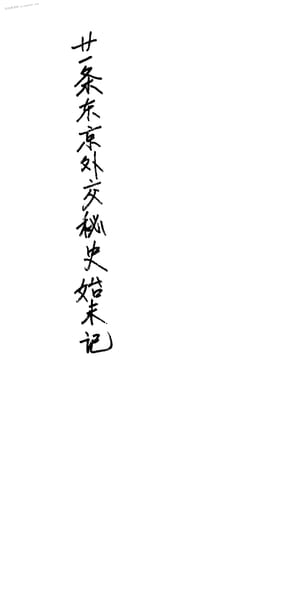 廿一条东京外交秘史始末记